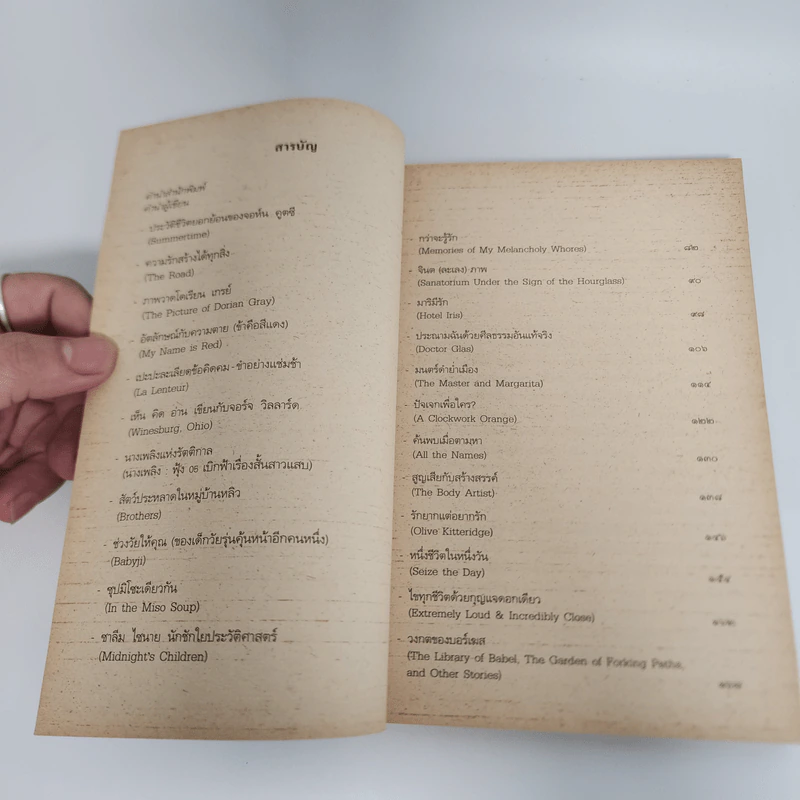 สารบัญ
คำนำสำนักพิมพ์
คำนำผู้เขียน
- ประวัติชีวิตยอกย้อนของจอห์น คูตซี
(Summertime)
- ความรักสร้างได้ทุกสิ่ง
(The Road)
- ภาพวาดโดเรียน เกรย์
(The Picture of Dorian Gray)
- อัตลักษณ์กับความตาย (ข้าคือสีแดง)
(My Name is Red)
- เปะปะละเลียดข้อคิดคม-ขำอย่างแช่มช้า
(La Lenteur)
- เห็น คิด อ่าน เขียนกับจอร์จ วิลลาร์ด
(Winesburg, Ohio)
- นางเพลิงแห่งรัตติกาล
(นางเพลิง : ฟุ้ง 06 เบิกฟ้าเรื่องสั้นสาวแสบ)
- สัตว์ประหลาดในหมู่บ้านหลิว
(Brothers)
- ช่วงวัยให้คุณ (ของเด็กวัยรุ่นคุ้นหน้าอีกคนหนึ่ง)
(Babyji)
- ซุปมิโซะเดียวกัน
(In the Miso Soup)
- ซาลีม ไซนาย นักชักใยประวัติศาสตร์
(Midnight's Children)
- กว่าจะรู้รัก
(Memories of My Melancholy Whores) ๘๒
- จินต (ละเลง) ภาพ
(Sanatorium Under the Sign of the Hourglass) ๙๐
- มาริมีรัก
(Hotel Iris) ๙๘
- ประณามฉันด้วยศีลธรรมอันแท้จริง
(Doctor Glas) ๑๐๖
- มนตร์ดำยำเมือง
(The Master and Margarita) ๑๑๔
- ปัจเจกเพื่อใคร?
(A Clockwork Orange) ๑๒๒
- ค้นพบเมื่อตามหา
(All the Names) ๑๓๐
- สูญเสียกับสร้างสรรค์
(The Body Artist) ๑๓๗
- รักยากแต่อยากรัก
(Olive Kitteridge) ๑๔๖
- หนึ่งชีวิตในหนึ่งวัน
(Seize the Day) ๑๕๔
- ไขทุกชีวิตด้วยกุญแจดอกเดียว
(Extremely Loud & Incredibly Close)
- วงกตของบอร์เฆส
(The Library of Babel, The Garden of Forking Paths,
and Other Stories)